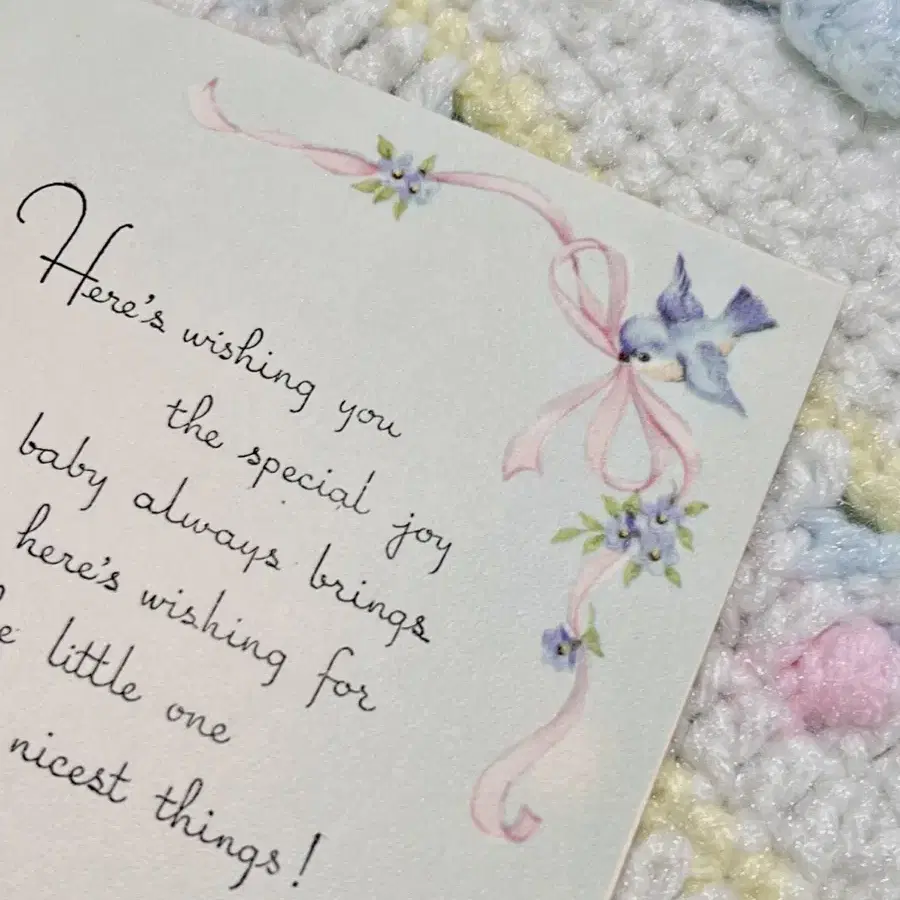 Here's wishing you
the special joy
baby always brings
here's wishing for
little one
nicest things!